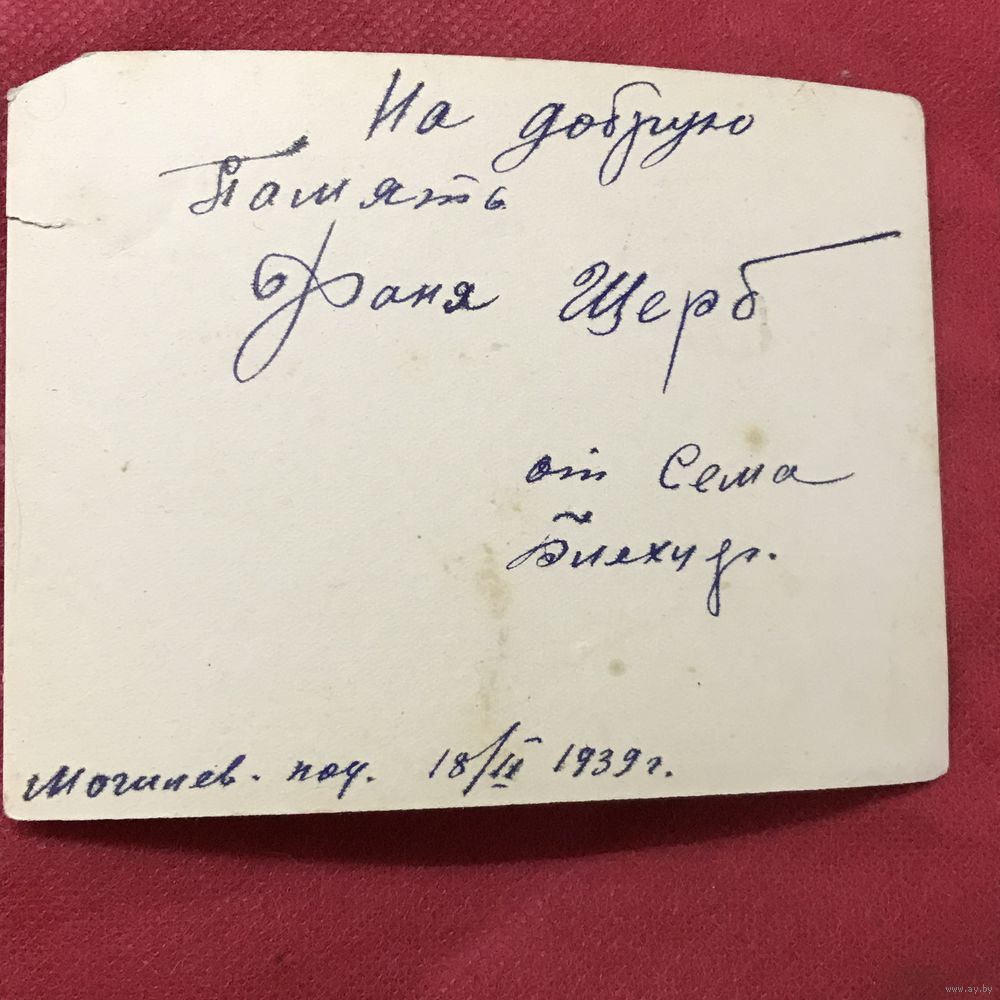 На добрую
Память
Фаня Щерб
от Сема
Могилев. под. 18/II 1939 г.
www.ay.by